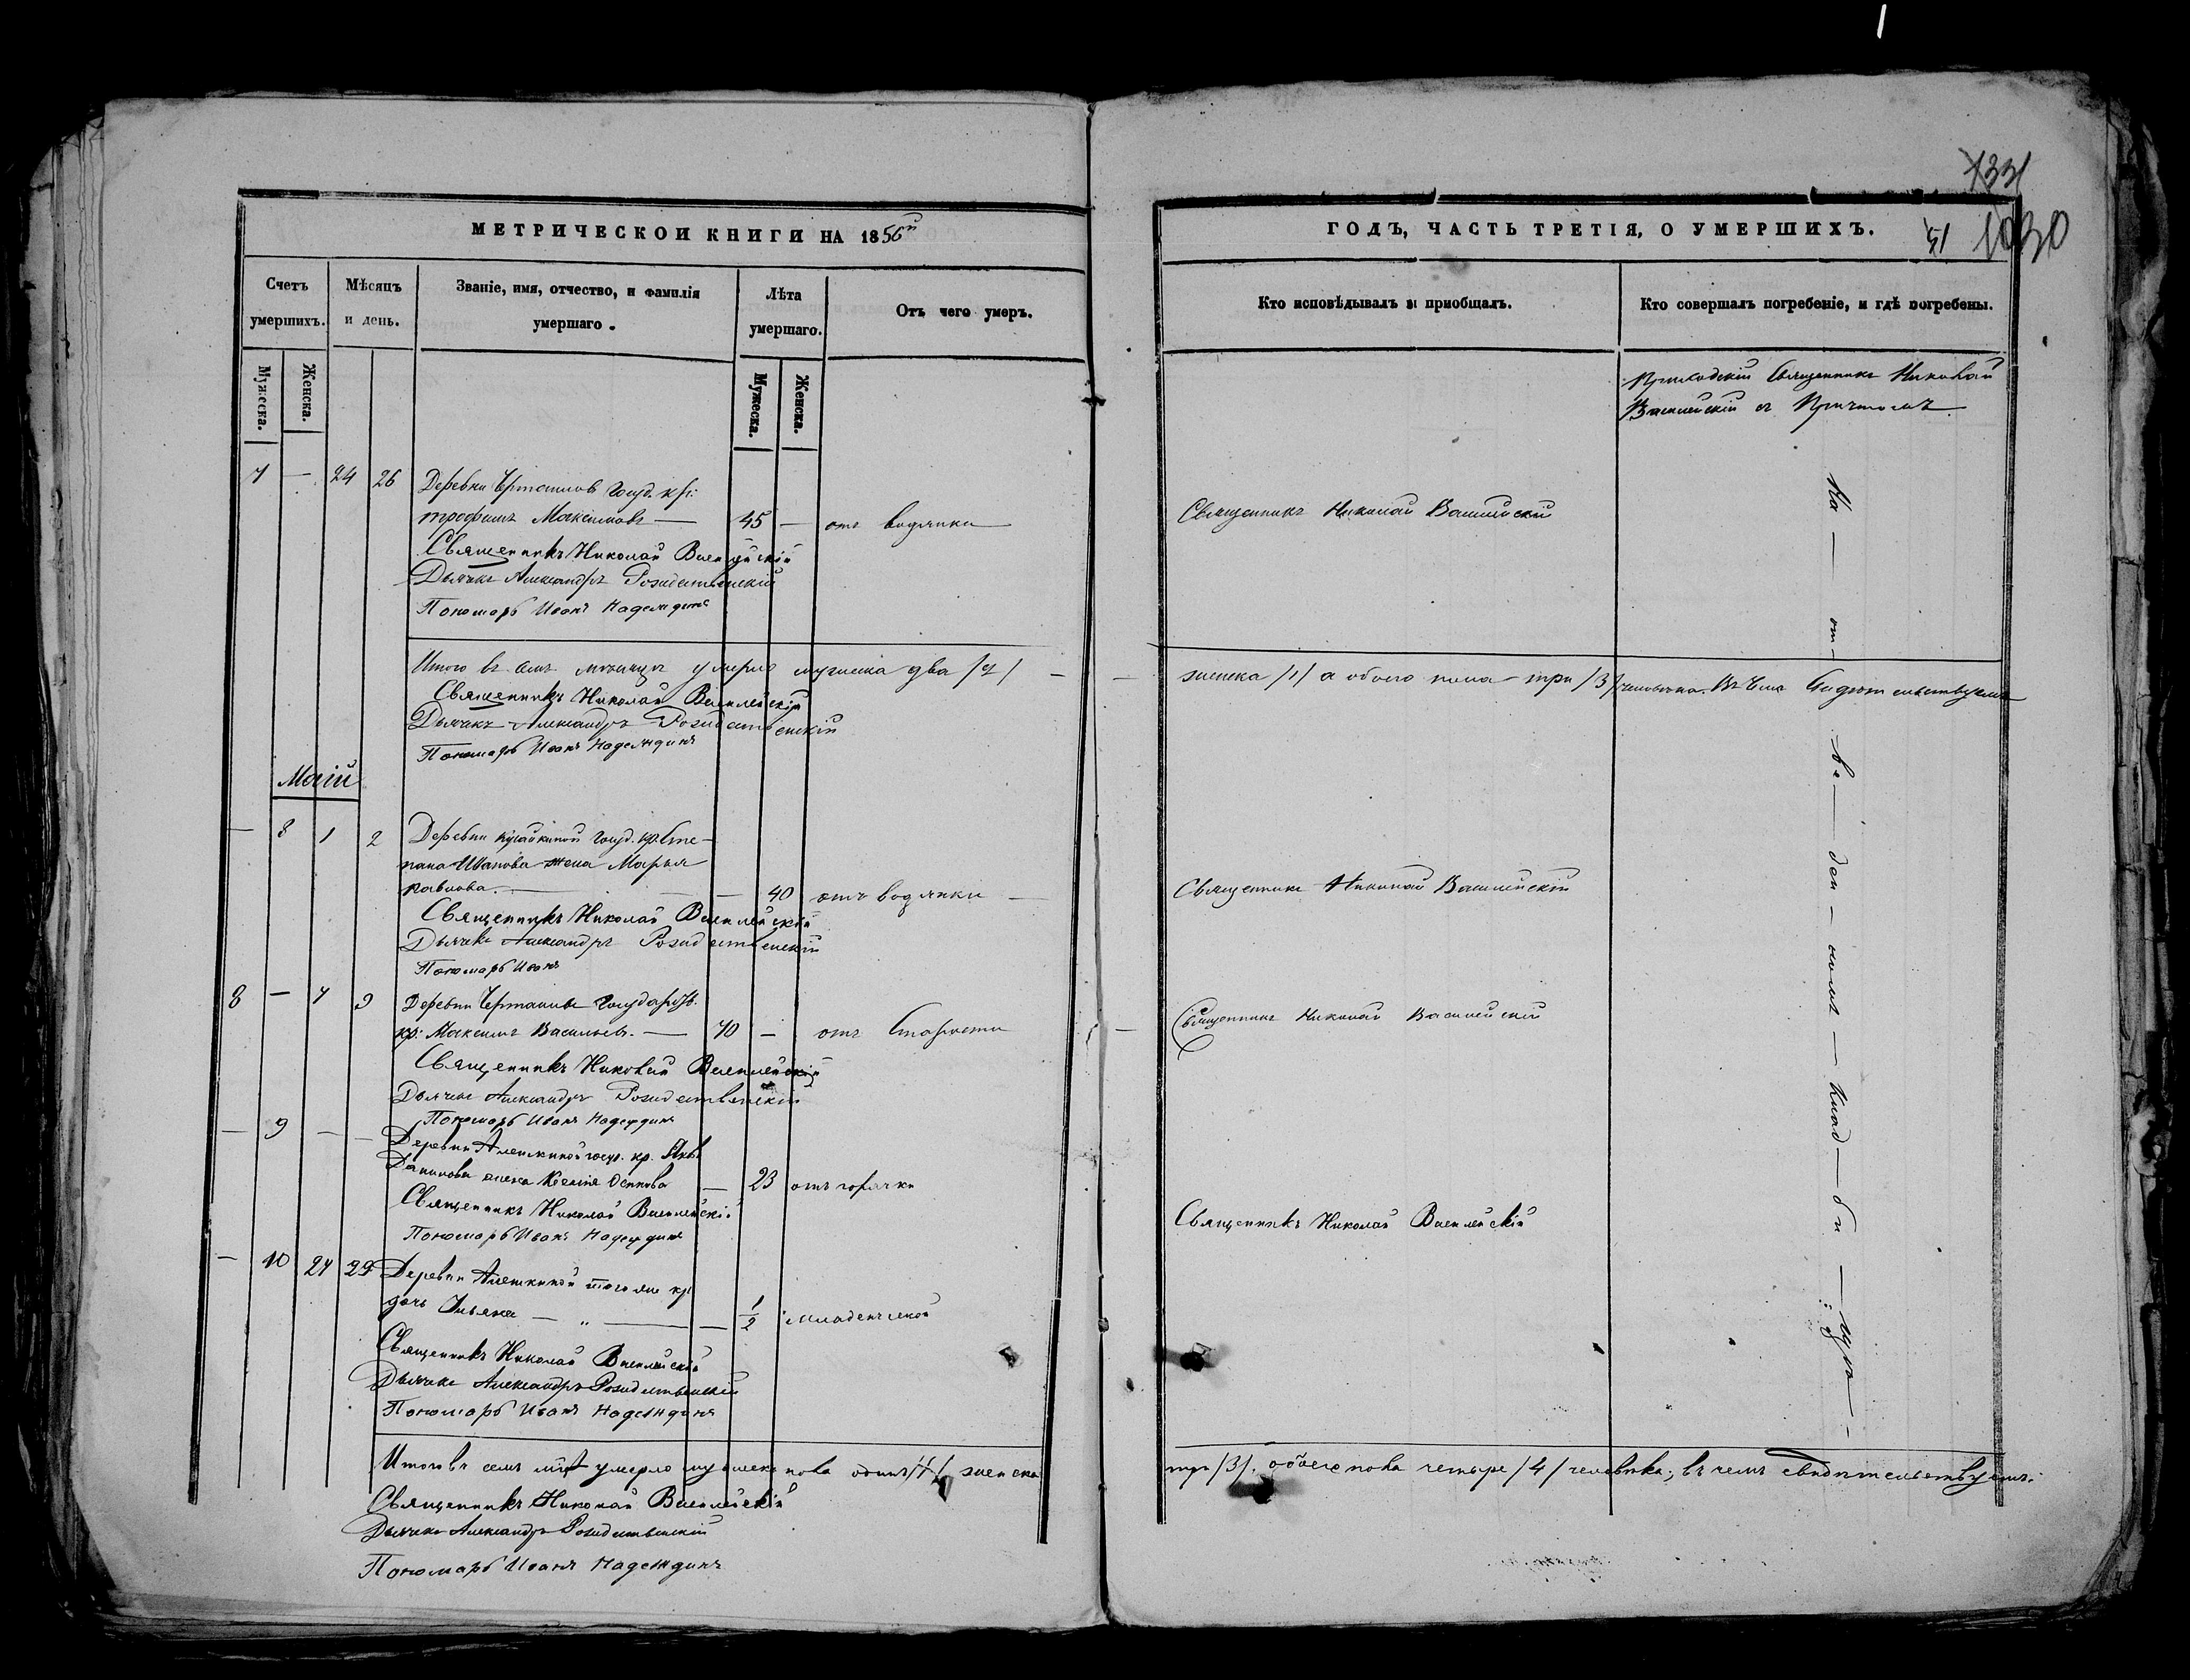 1331
МЕТРИЧЕСКОИ КНИГИ НА 1856й
ГОДЪ, ЧАСТЬ ТРЕТІЯ, О УМЕРШИХЪ.
51 1030
Счетъ умершихъ.
Мѣсяцъ и день.
Званіе, имя, отчество, и фамилія умершаго.
Лѣта умершаго.
Отъ чего умеръ.
Кто исповѣдывалъ и приобщалъ.
Кто совершалъ погребеніе, и гдѣ погребены.
Мужеска.
Женска.
Мужеска.
Женска.
Приходскій Священникъ Николай
Василейскій съ Причтомъ.
7 — 24 26 Деревни Государ. кр:
трофимъ Максимовъ — 45 — отъ водянки
Священникъ Николай Василейскій
Священникъ Николай Василейскій
Дьячекъ Александръ Рождественскій
Пономарь Иванъ Надеждинъ
Итого въ семъ мѣсяцѣ умерло мужеска два /2/ —
— женска /1/ а обоего пола три /3/ человѣка. Въ чемъ Свидѣтельствуемъ
Священникъ Николай Василейскій
Дьячекъ Александръ Рождественскій
Пономарь Иванъ Надеждинъ
Маій
— 8 1 2 Деревни госуд. кр. Сте-
пана Иванова жена Марья
Павлова. — — 40 отъ водянки —
Священникъ Николай Василейскій
Священникъ Николай Василейскій
Дьячекъ Александръ Рождественскій
Пономарь Иванъ
8 — 7 9 Деревни государств.
кр: Максимъ Васильевъ. — 70 — отъ Старости
Священникъ Николай Василейскій
Священникъ Николай Василейскій
Дьячекъ Александръ Рождественскій
Пономарь Иванъ Надеждинъ
— 9 — — Деревни Алешкиной госуд. кр.
Данилова жена Ксенія Осипова — 23 отъ горячки
Священникъ Николай Василейскій
Священникъ Николай Василейскій
Пономарь Иванъ Надеждинъ
— 10 27 29 Деревни Алешкиной того же кр
дочь Ульяна — „ — — 1/2 младенческой
Священникъ Николай Василейскій
Дьячекъ Александръ Рождественскій
Пономарь Иванъ Надеждинъ
На — от — ве — ден — номъ — клад — би — щѣ —
Итого въ семъ умерло мужеска пола одинъ /1/ женска
три /3/. обоего пола четыре /4/ человѣка; въ чемъ свидѣтельствуемъ:
Священникъ Николай Василейскій
Дьячекъ Александръ Рождественскій
Пономарь Иванъ Надеждинъ